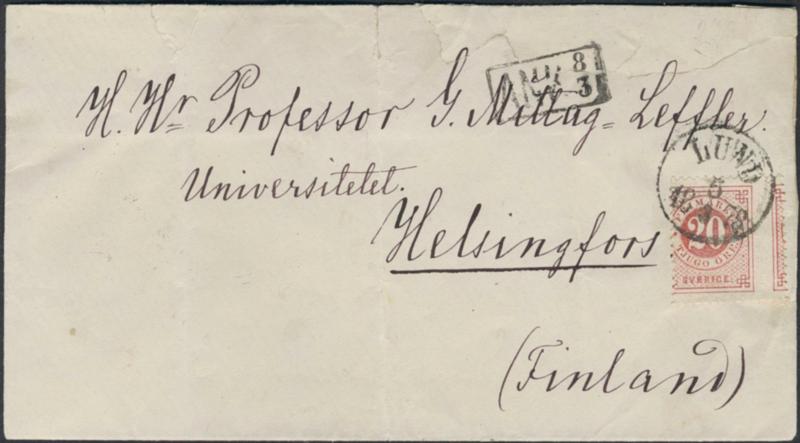 ANK 8
3
H. Hr Professor G. Mittag-Leffler.
LUND
5
3
Universitetet.
Helsingfors
20
TJUGO ÖRE
SVERIGE
(Finland)